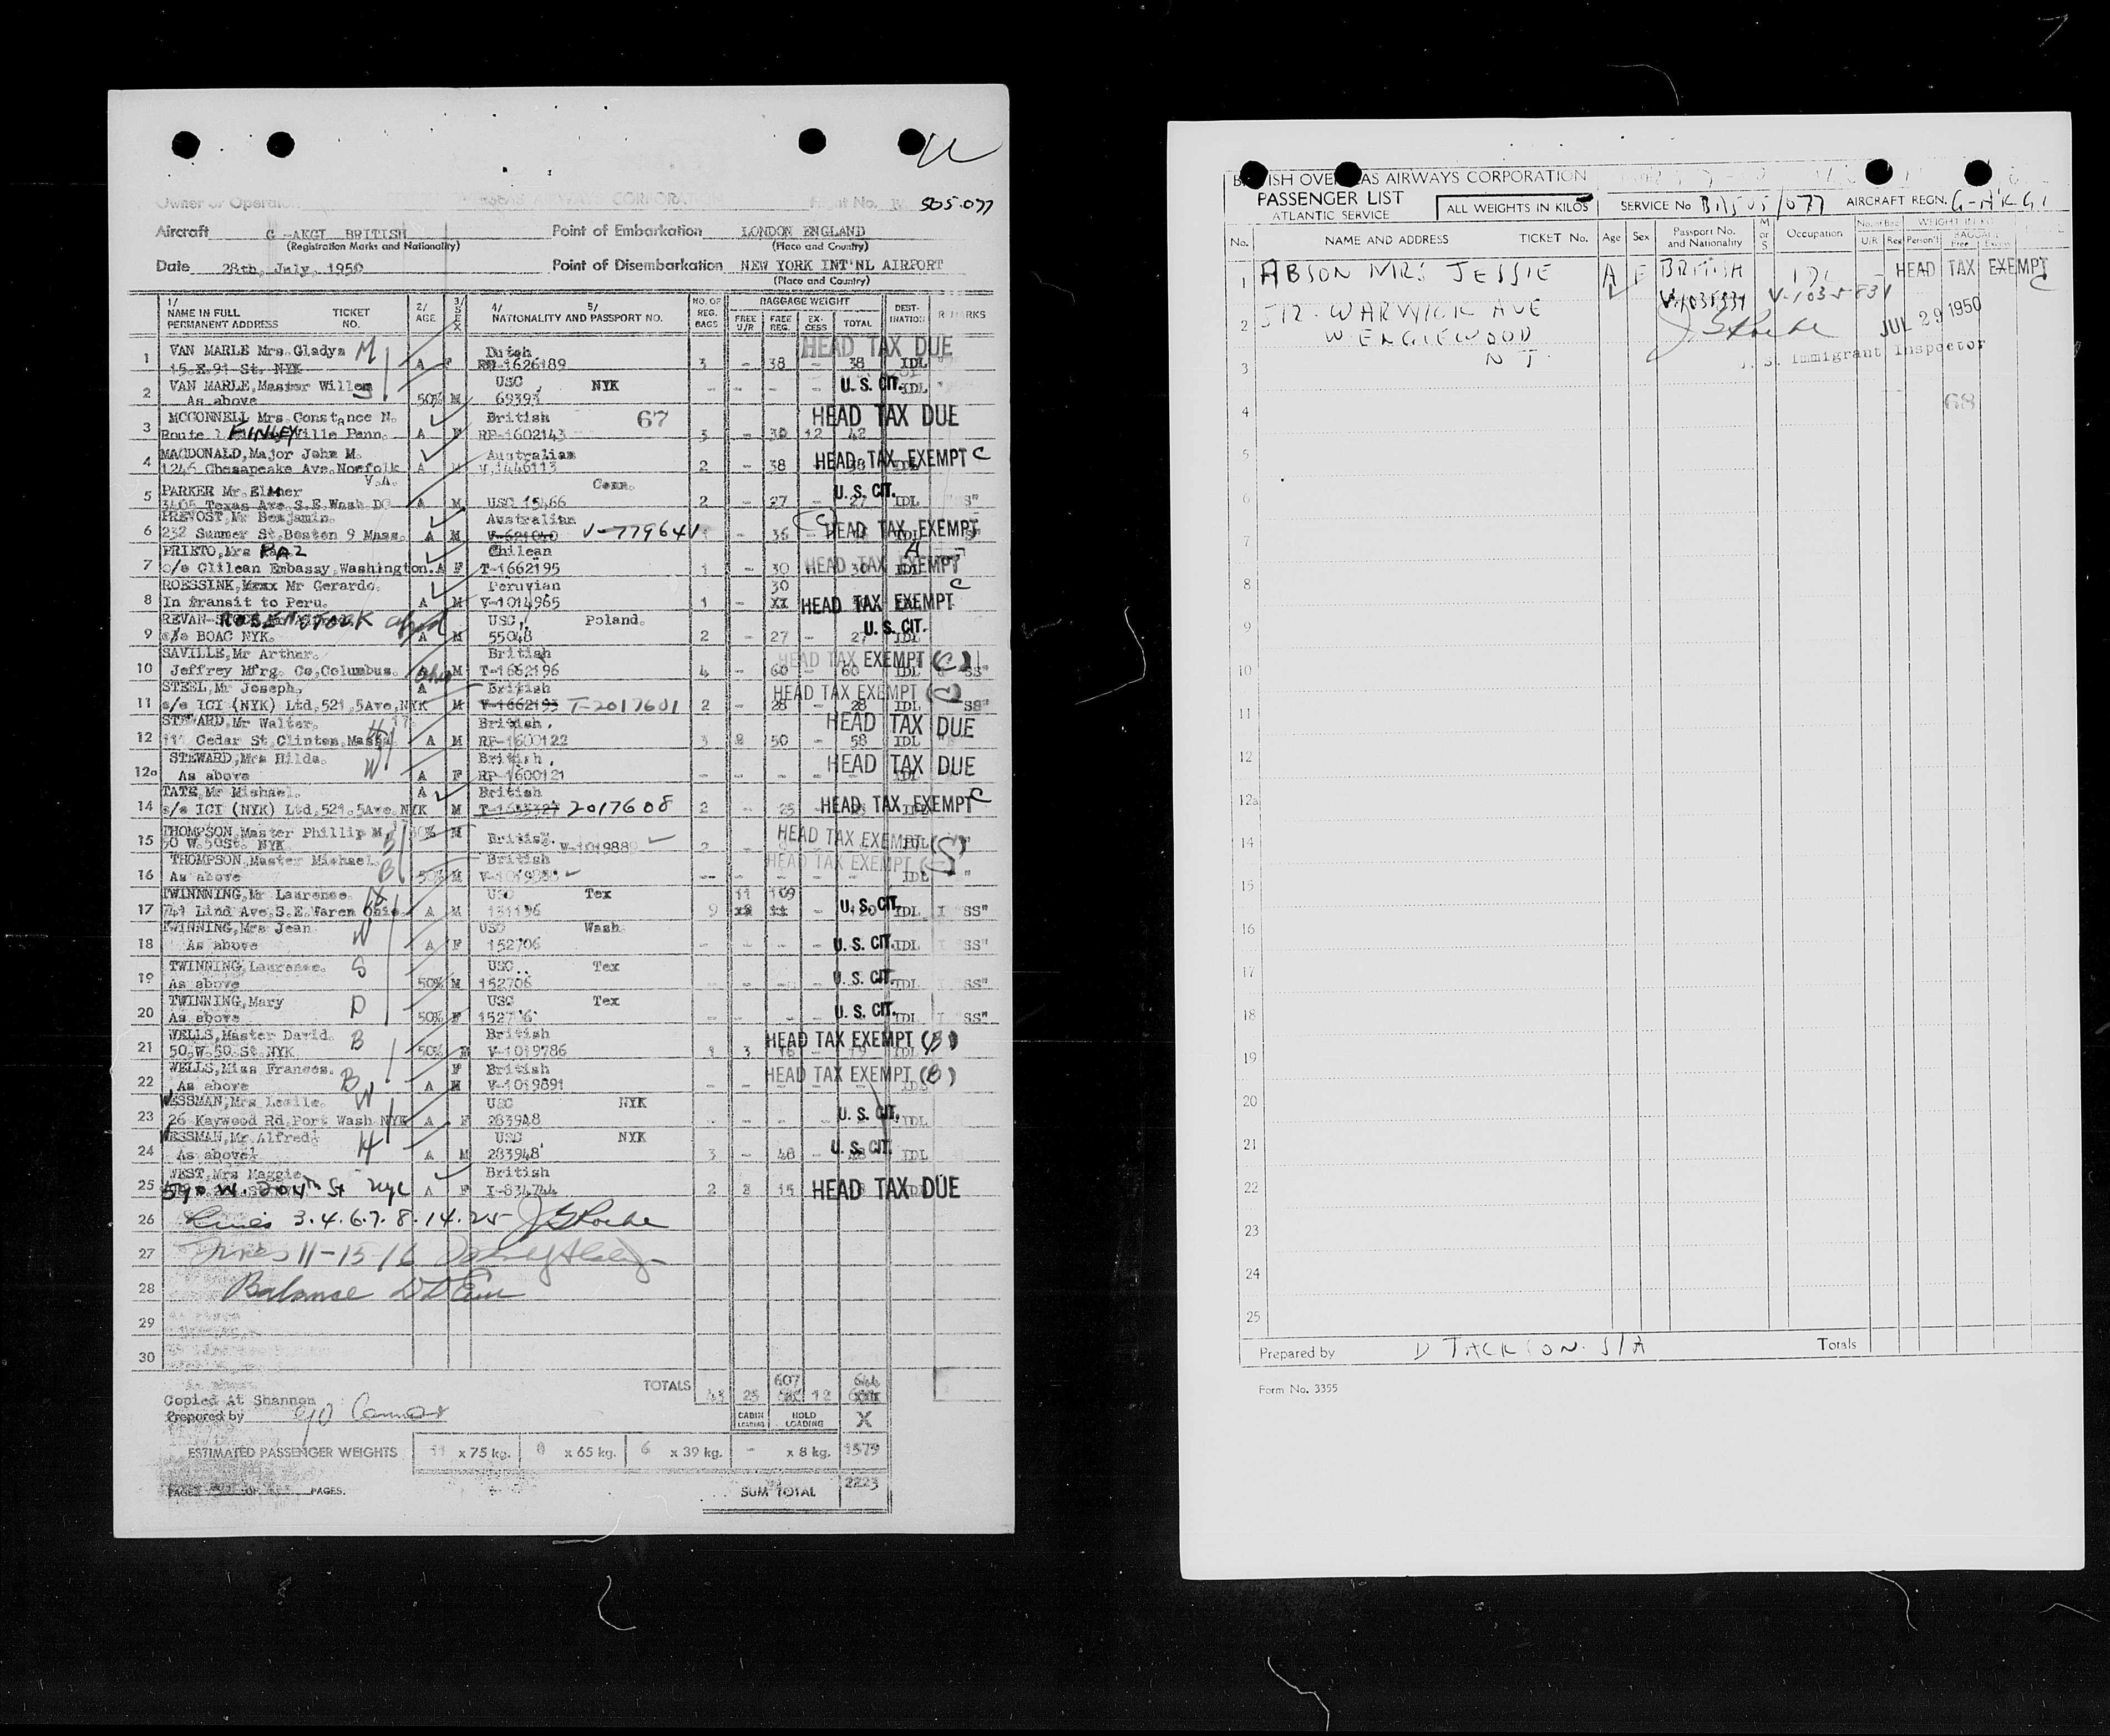 505-077
Owner or Operator OVERSEAS AIRWAYS CORPORATION Flight No.
Aircraft G -AKGI BRITISH Point of Embarkation LONDON ENGLAND
(Registration Marks and Nationality) (Place and Country)
Date 28th, July, 1950 Point of Disembarkation NEW YORK INT'NL AIRPORT
(Place and Country)
1/ NAME IN FULL PERMANENT ADDRESS TICKET NO. 2/ AGE 3/ SEX 4/ 5/ NATIONALITY AND PASSPORT NO. NO. OF REG. BAGS BAGGAGE WEIGHT FREE U/R FREE REG. EXCESS TOTAL DESTINATION REMARKS
1 VAN MARLE Mrs. Gladys M Dutch HEAD TAX DUE
15.E.91 St. NYK A F RP-1626189 3 - 38 - 38 IDL
2 VAN MARLE, Master Willem S USC NYK U. S. CIT. IDL
As above 50% M 69393
3 MCCONNELL Mrs. Constance N. British 67 HEAD TAX DUE
Route 1 FINLEYville Penn. A F RP-1602143 3 - 30 12 42
4 MACDONALD, Major John M. Australian
1246 Chesapeake Ave. Norfolk V.A. A M V.1446113 2 - 38 HEAD TAX EXEMPT C
5 PARKER Mr. Elmer Conn. U. S. CIT.
3405 Texas Ave. S.E. Wash DC A M USC 15466 2 - 27 - 27 IDL "S"
6 PREVOST, Mr Benjamin. Australian
232 Summer St. Boston 9 Mass. A M V-621040 V-779641 - 36 (C) HEAD TAX EXEMPT
7 PRIETO, Mrs PAZ Chilean A
c/o Clilean Embassy, Washington. A F T-1662195 1 - 30 HEAD TAX EXEMPT
8 ROESSINK, Mrxx Mr Gerardo. Peruvian 30 C
In transit to Peru. A M V-1014965 1 - xx HEAD TAX EXEMPT
9 REVAN- USC, Poland. U. S. CIT.
c/o BOAC NYK. A M 55048 2 - 27 - 27 IDL
10 SAVILLE, Mr Arthur. British HEAD TAX EXEMPT (C)
Jeffrey Mfrg. Co, Columbus. Ohio M T-1662196 4 - 60 - 60 IDL SS"
11 STEEL, Mr Joseph. A British HEAD TAX EXEMPT (C)
c/o ICI (NYK) Ltd, 521, 5Ave, NYK M V-1662193 T-2017601 2 - 28 - 28 IDL SS"
12 STEWARD, Mr Walter. H British. HEAD TAX DUE
117 Cedar St. Clinton, Massa. A M RP-1600122 3 8 50 - 58 IDL
12a STEWARD, Mrs Hilda. W British. HEAD TAX DUE
As above A F RP-1600121
14 TATE, Mr Michael. A British
c/o ICI (NYK) Ltd, 521, 5Ave. NYK M 2017608 2 - 25 HEAD TAX EXEMPT C
15 THOMPSON, Master Phillip M. B 50% M HEAD TAX EXEMPT
50 W.50St. NYK British. V-1019889 2 - IDL
16 THOMPSON, Master Michael. B British HEAD TAX EXEMPT
As above 50% M IDL
17 TWINNNING, Mr Laurence. USC Tex 11 109
741 Lind Ave. S.E. Waren Ohio. A M 131196 9 xx xx - 120 U. S. CIT. IDL SS"
18 TWINNING, Mrs Jean W USC Wash.
As above A F 152706 U. S. CIT. IDL SS"
19 TWINNING, Laurence. S USC Tex
As above 50% M 152706 U. S. CIT. IDL SS"
20 TWINNING, Mary D USC Tex
As above 50% F 152706 U. S. CIT. IDL SS"
21 WELLS, Master David. B British HEAD TAX EXEMPT (B)
50. W. 50. St. NYK 50% M V-1019786 1 3 16 - 19 IDL
22 WELLS, Miss Frances. B F British HEAD TAX EXEMPT (B)
As above A M V-1019891
23 WESSMAN, Mrs Leslie. W USC NYK U. S. CIT.
26 Kaywood Rd. Port Wash NYK A F 283948 IDL
24 WESSMAN, Mr. Alfred. H USC NYK
As above A M 283948 3 - 48 - 48 U. S. CIT. IDL
25 WEST, Mrs Maggie. British
590 W. 204th St NYC A F I-834744 2 3 15 HEAD TAX DUE
26 Lines 3.4.6.7.8.14.25 J S Roche
27 Lines 11-15-16
28 Balance
29
30
TOTALS 607 644
43 25 12
Copied At Shannon
Prepared by
CABIN LOADING HOLD LOADING X
ESTIMATED PASSENGER WEIGHTS 11 x 75 kg. 8 x 65 kg. 6 x 39 kg. - x 8 kg. 1579
PAGES OF PAGES. SUM TOTAL 2223
BRITISH OVERSEAS AIRWAYS CORPORATION
PASSENGER LIST
ATLANTIC SERVICE ALL WEIGHTS IN KILOS SERVICE No BA505/077 AIRCRAFT REGN. G-AKGI
No. NAME AND ADDRESS TICKET No. Age Sex Passport No. and Nationality M or S Occupation No. of Bag U/R Reg WEIGHT IN KILOS Person'l BAGGAGE Free Excess
1 ABSON MRS JESSIE A F BRITISH HEAD TAX EXEMPT C
V-1035831
2 512. WARWICK AVE J S Roche JUL 29 1950
W ENGLEWOOD
U. S. Immigrant Inspector
3 N J.
4 68
5
6
7
8
9
10
11
12
12a
14
15
16
17
18
19
20
21
22
23
24
25
Prepared by D JACKSON. S/A Totals
Form No. 3355